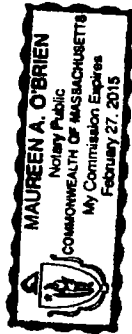 MAUREEN A. O'BRIEN
Notary Public
COMMONWEALTH OF MASSACHUSETTS
My Commission Expires
February 27, 2015